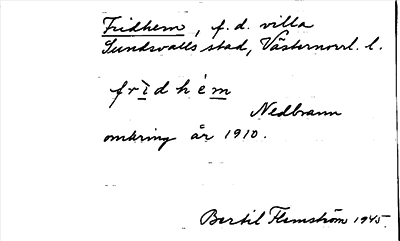 Fridhem, f.d. villa
Sundsvalls stad, Västernorrl. l.
frìdhém
Nedbrann
omkring år 1910.
Bertil Flemström 1945.